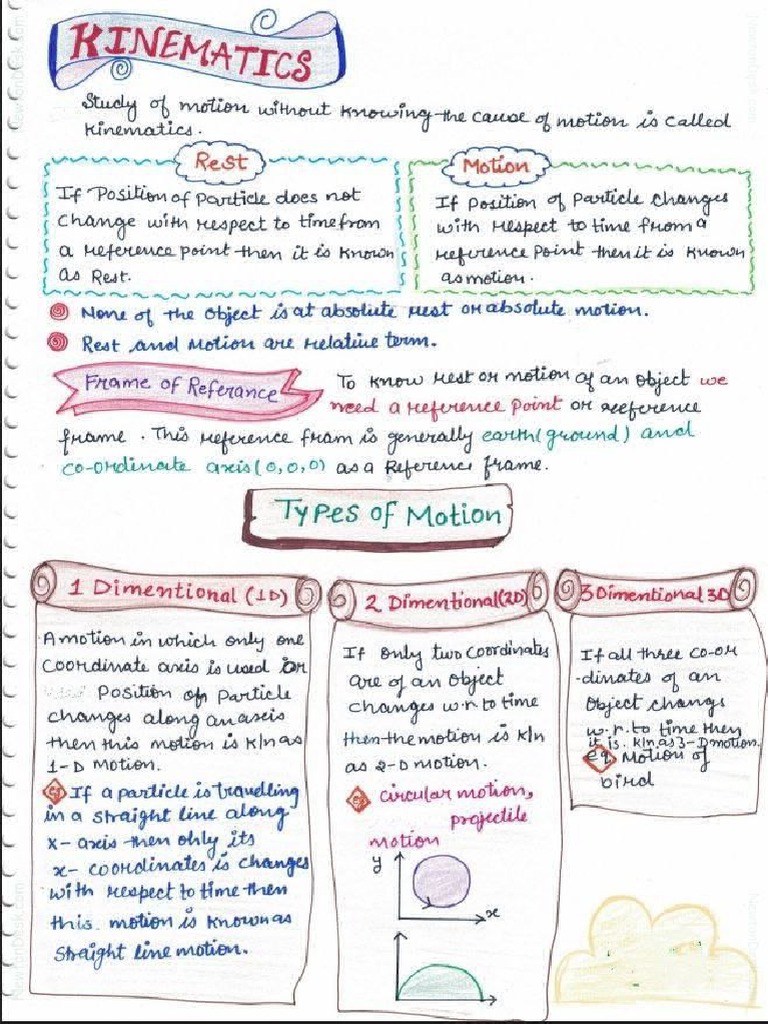 KINEMATICS
Study of motion without knowing the cause of motion is called
kinematics.
Rest
If Position of Particle does not
change with respect to time from
a reference point then it is known
as Rest.
Motion
If position of Particle changes
with respect to time from a
reference Point then it is known
as motion.
None of the Object is at absolute rest or absolute motion.
Rest and Motion are relative term.
Frame of Referance
To know rest or motion of an object we
need a reference point or reference
frame. This reference fram is generally earth(ground) and
co-ordinate axis(0,0,0) as a Reference frame.
Types of Motion
1 Dimentional (1D)
A motion in which only one
coordinate axis is used or
Position of Particle
changes along an axis
then this motion is k/n as
1-D Motion.
eg If a particle is travelling
in a straight line along
x-axis then only its
x-coordinates is changes
with respect to time then
this motion is known as
straight line motion.
2 Dimentional(2D)
If only two coordinates
are of an object
changes w.r to time
then the motion is k/n
as 2-D motion.
eg circular motion,
projectile
motion
y
x
3 Dimentional 3D
If all three co-or
-dinates of an
Object changs
w.r.to time then
it is k/n as 3-D motion.
eg Motion of
bird